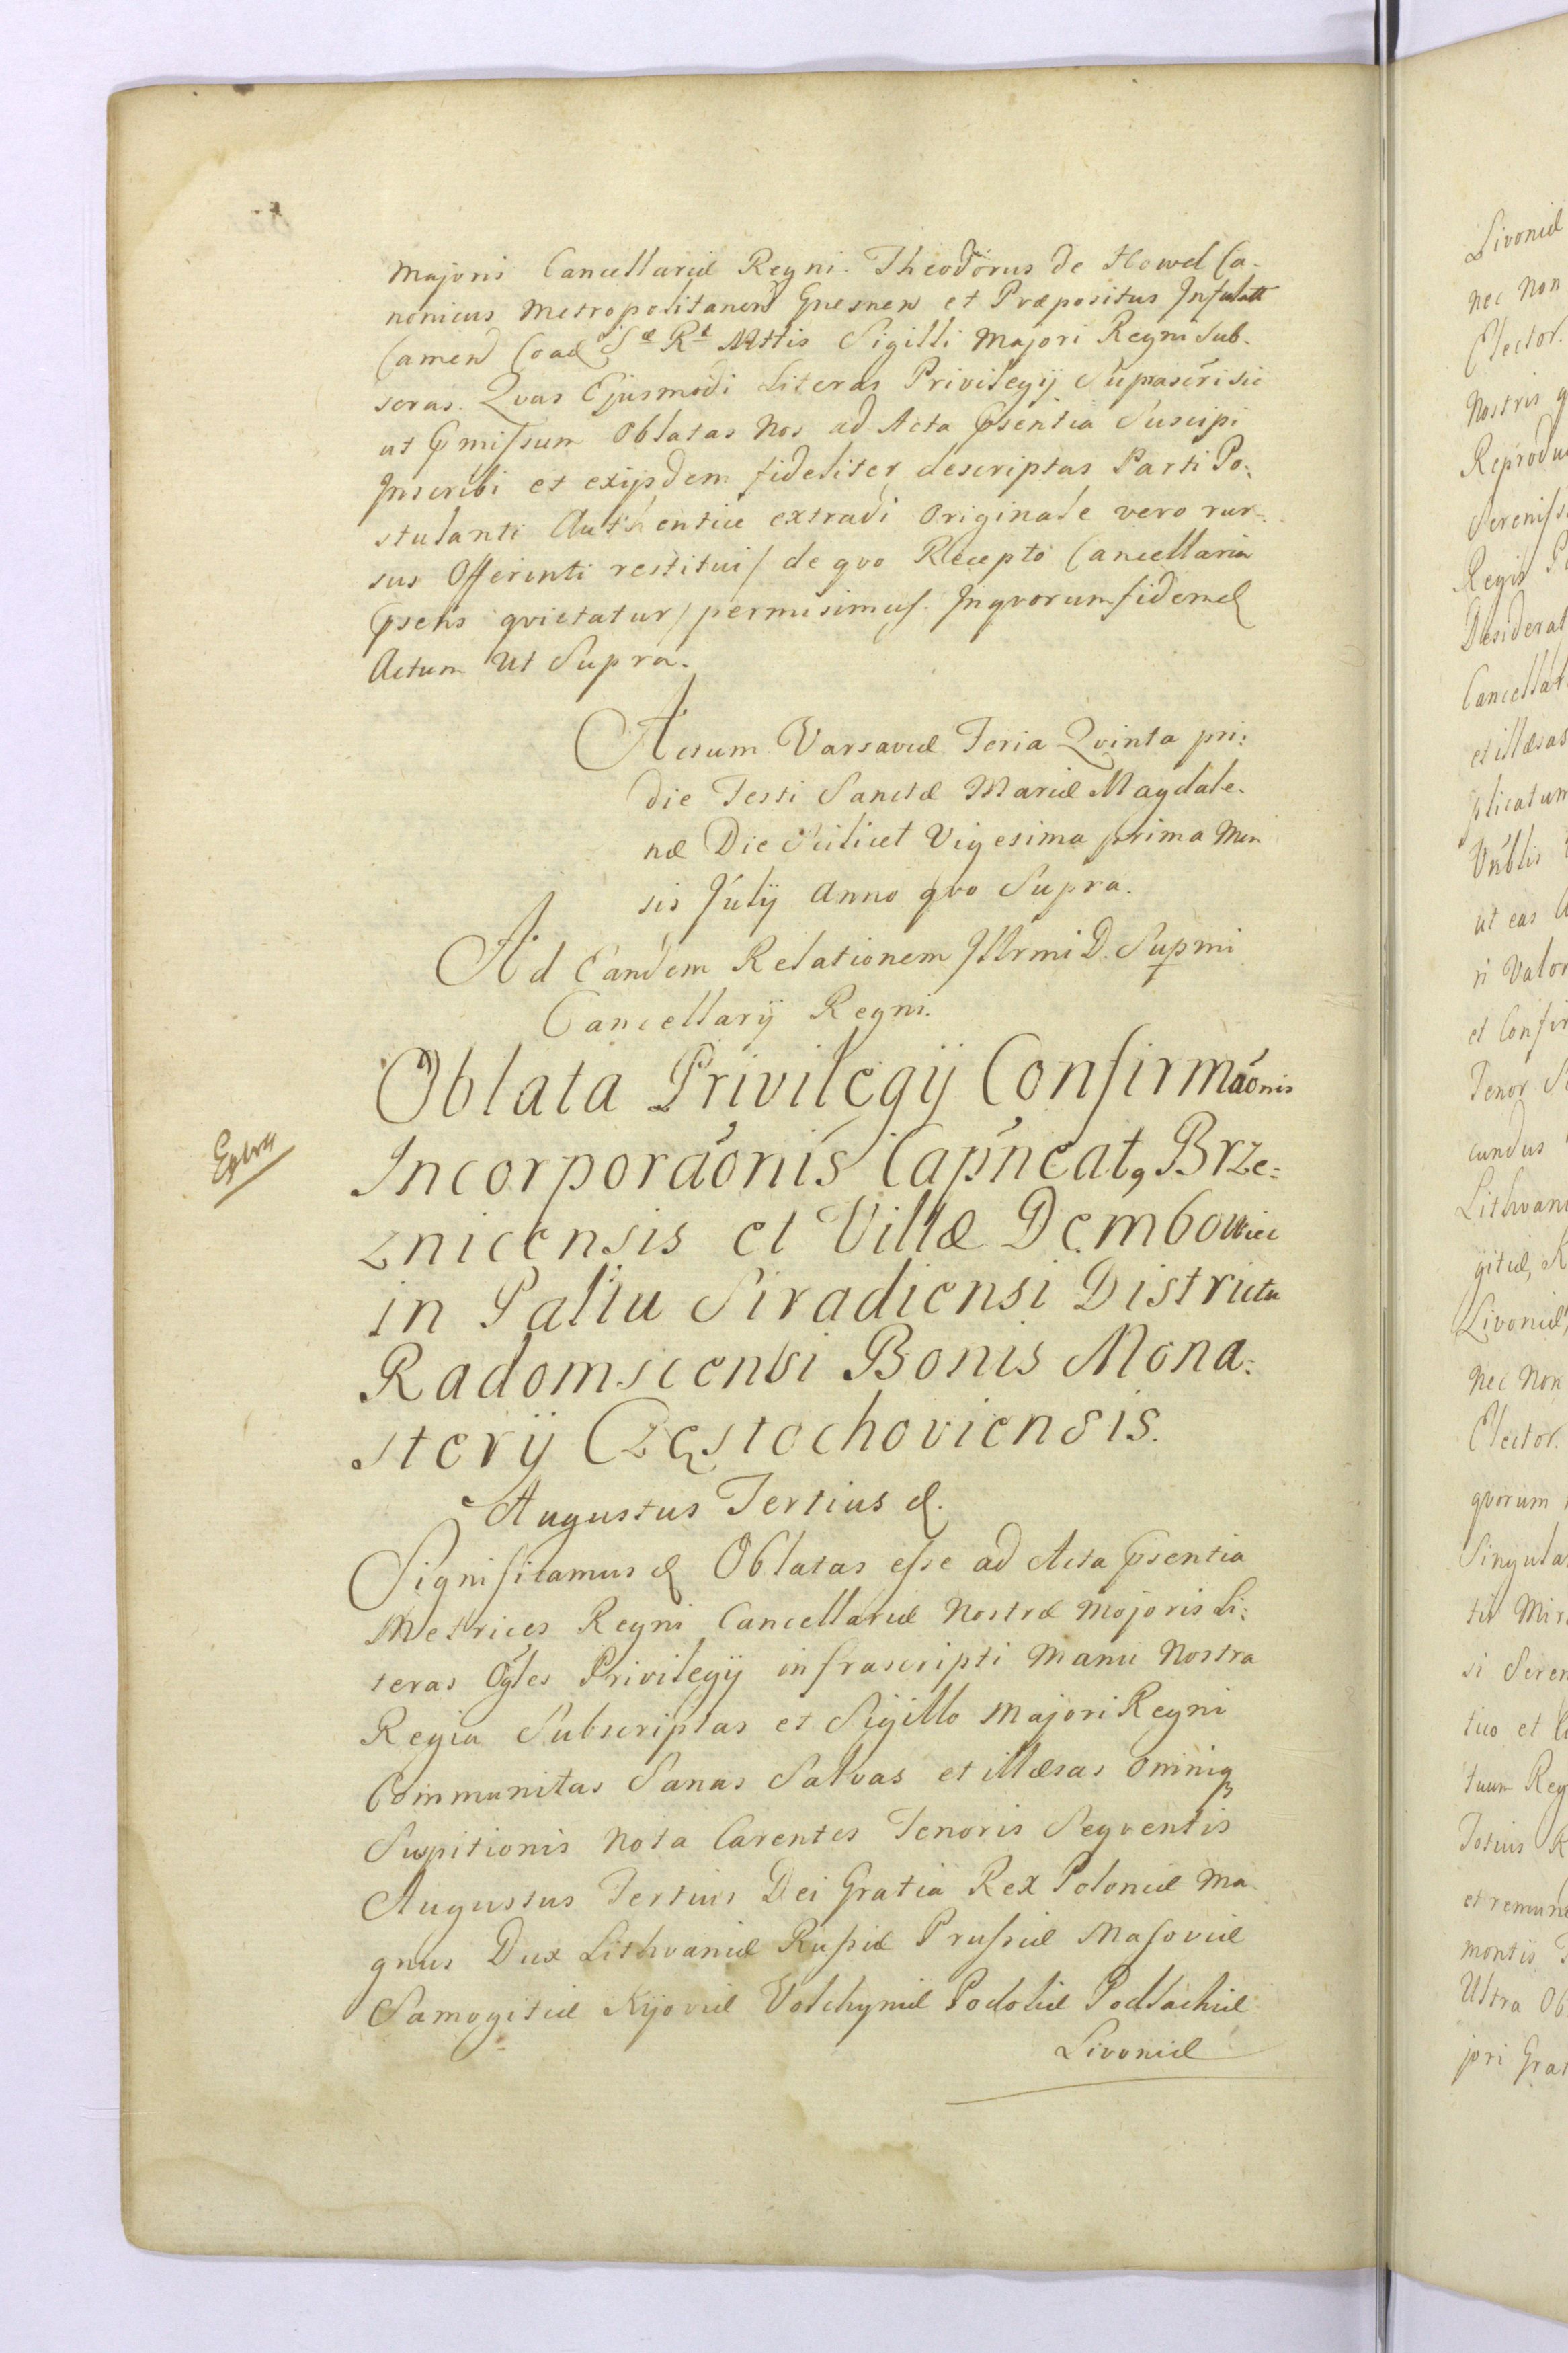 Majoris Cancellariæ Regni. Theodorus de Howel Ca-
nonicus Metropolitanens Gnesnens et Præpositus Infulatt
Camens Coad Sæ Ræ Mttis Sigilli Majori Regni Sub-
scras. Qvas Ejusmodi Literas Privilegij Suprascri sic
ut Pmissum Oblatas Nos ad Acta Psentia Suscipi
Inscribi et exijsdem fideliter descriptas Parti Po:
stulanti Authentice extradi Originale vero rur-
sus Offerenti restitui/ de qvo Recepto Cancellaria
Psens qvietatur/ permisimus. In qvorum fidem &
Actum Ut Supra.
Actum Varsaviæ Feria Qvinta pri:
die Festi Sanctæ Mariæ Magdale-
næ Die Scilicet Vigesima prima Men
sis Julij Anno qvo Supra.
Ad Eandem Relationem Illrmi D. Supmi
Cancellarij Regni.
Extra
Oblata Privilegij Confirmaonis
Incorporaonis Capneat, Brze:
znicensis et Villæ Dembowiec
in Paltu Siradiensi Districtu
Radomscensi Bonis Mona:
sterij Częstochoviensis.
Augustus Tertius &.
Significamus & Oblatas esse ad Acta Psentia
Metrices Regni Cancellariæ Nostræ Majoris Li:
teras Ogles Privilegij infrascripti Manu Nostra
Regia Subscriptas et Sigillo Majori Regni
Communitas Sanas Salvas et illæsas omniq
Suspitionis Nota Carentes Tenoris Seqventis
Augustus Tertius Dei Gratia Rex Poloniæ Ma-
gnus Dux Lithvaniæ Russiæ Prussiæ Masoviæ
Samogitiæ Kijoviæ Volhyniæ Podoliæ Podlachiæ
Livoniæ
Livoniæ
nec non
Elector.
Nostris
Sereniss
Regis
Desiderat
Cancellat
et illæsas
plicatum
ut eas
ri Valor
et Confir
Tenor
cundus
Lithvani
gitiæ,
Livoniæ,
nec Non
Elector.
qvorum
Singula
si Seren
tuo et
tuum Reg
Totius
et remun
montis
Ultra Ob
jori Grat